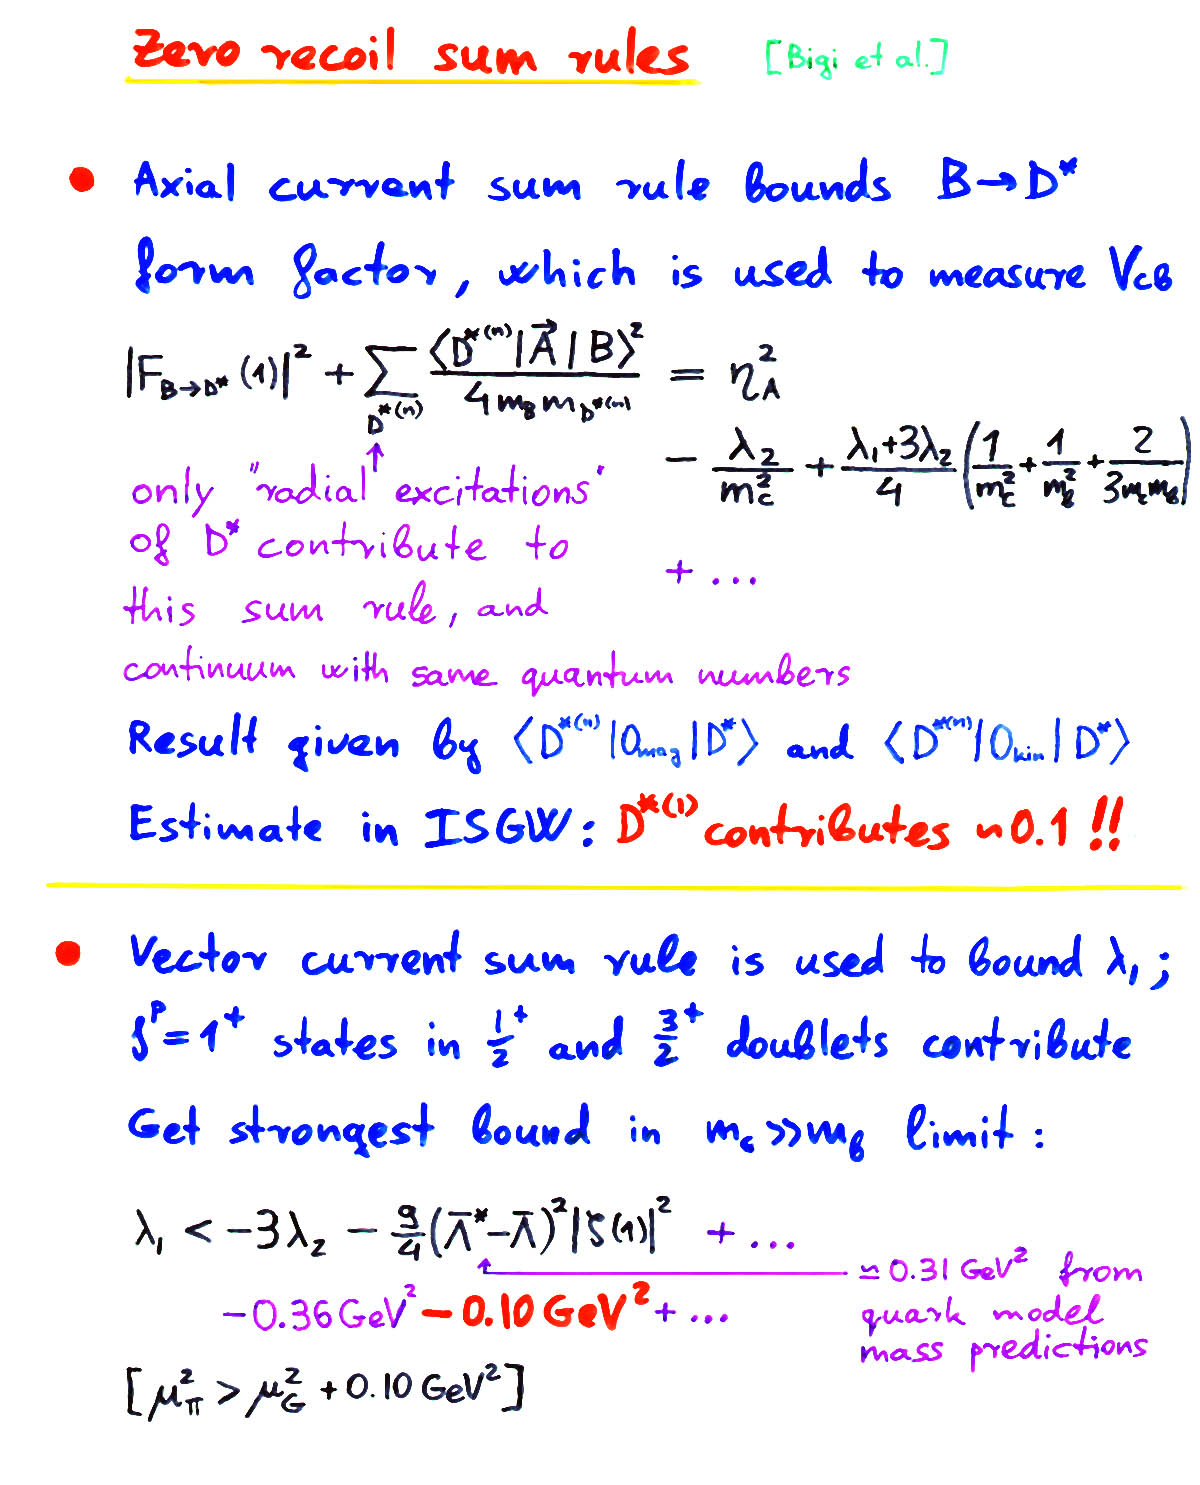 Zero recoil sum rules [Bigi et al.]
• Axial current sum rule bounds B→D*
form factor, which is used to measure V_cb
|F_{B→D*}(1)|² + Σ_{D*(n)} ⟨D*⁽ⁿ⁾|A⃗|B⟩² / 4 m_B m_{D*(n)} = η_A²
− λ₂/m_c² + (λ₁+3λ₂)/4 (1/m_c² + 1/m_b² + 2/3m_c m_b)
+ ...
only "radial excitations"
of D* contribute to
this sum rule, and
continuum with same quantum numbers
Result given by ⟨D*⁽ⁿ⁾|O_mag|D*⟩ and ⟨D*⁽ⁿ⁾|O_kin|D*⟩
Estimate in ISGW: D*⁽¹⁾ contributes ~0.1 !!
• Vector current sum rule is used to bound λ₁;
J^P=1⁺ states in 1/2⁺ and 3/2⁺ doublets contribute
Get strongest bound in m_c≫m_b limit:
λ₁ < −3λ₂ − 9/4 (Λ̄*−Λ̄)² |ζ(1)|² + ...
≃ 0.31 GeV² from
quark model
mass predictions
−0.36 GeV² − 0.10 GeV² + ...
[μ_π² > μ_G² + 0.10 GeV²]